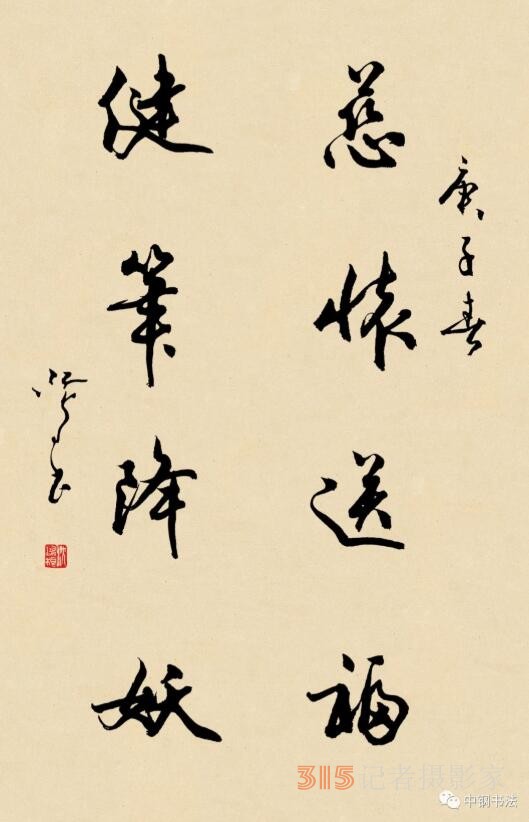 庚子春
慈怀送福
健笔降妖
315记者摄影家
中钢书法